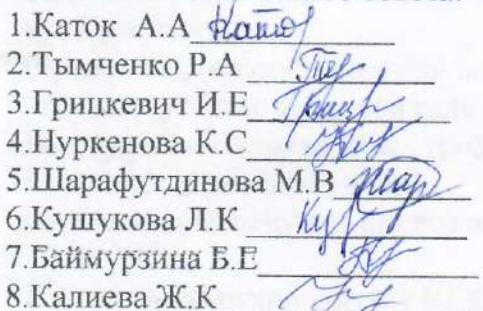 1.Каток А.А
2.Тымченко Р.А
3.Грицкевич И.Е
4.Нуркенова К.С
5.Шарафутдинова М.В
6.Кушукова Л.К
7.Баймурзина Б.Е
8.Калиева Ж.К